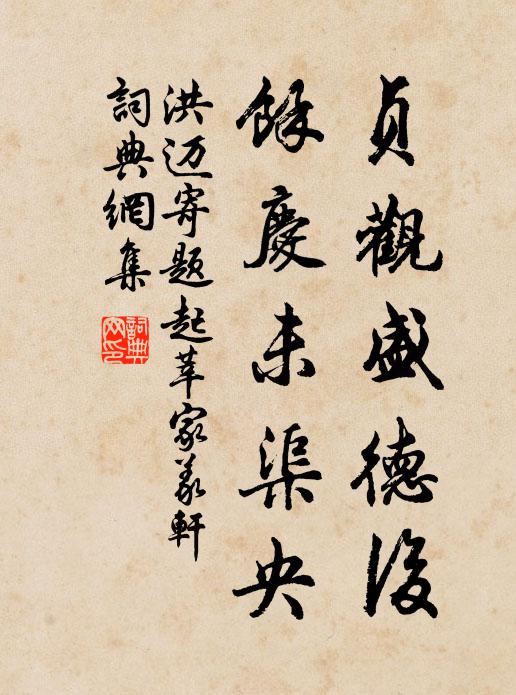 貞觀盛德後
餘慶未渠央
洪迈寄題起莘家義軒
詞典網集
詞典
网印